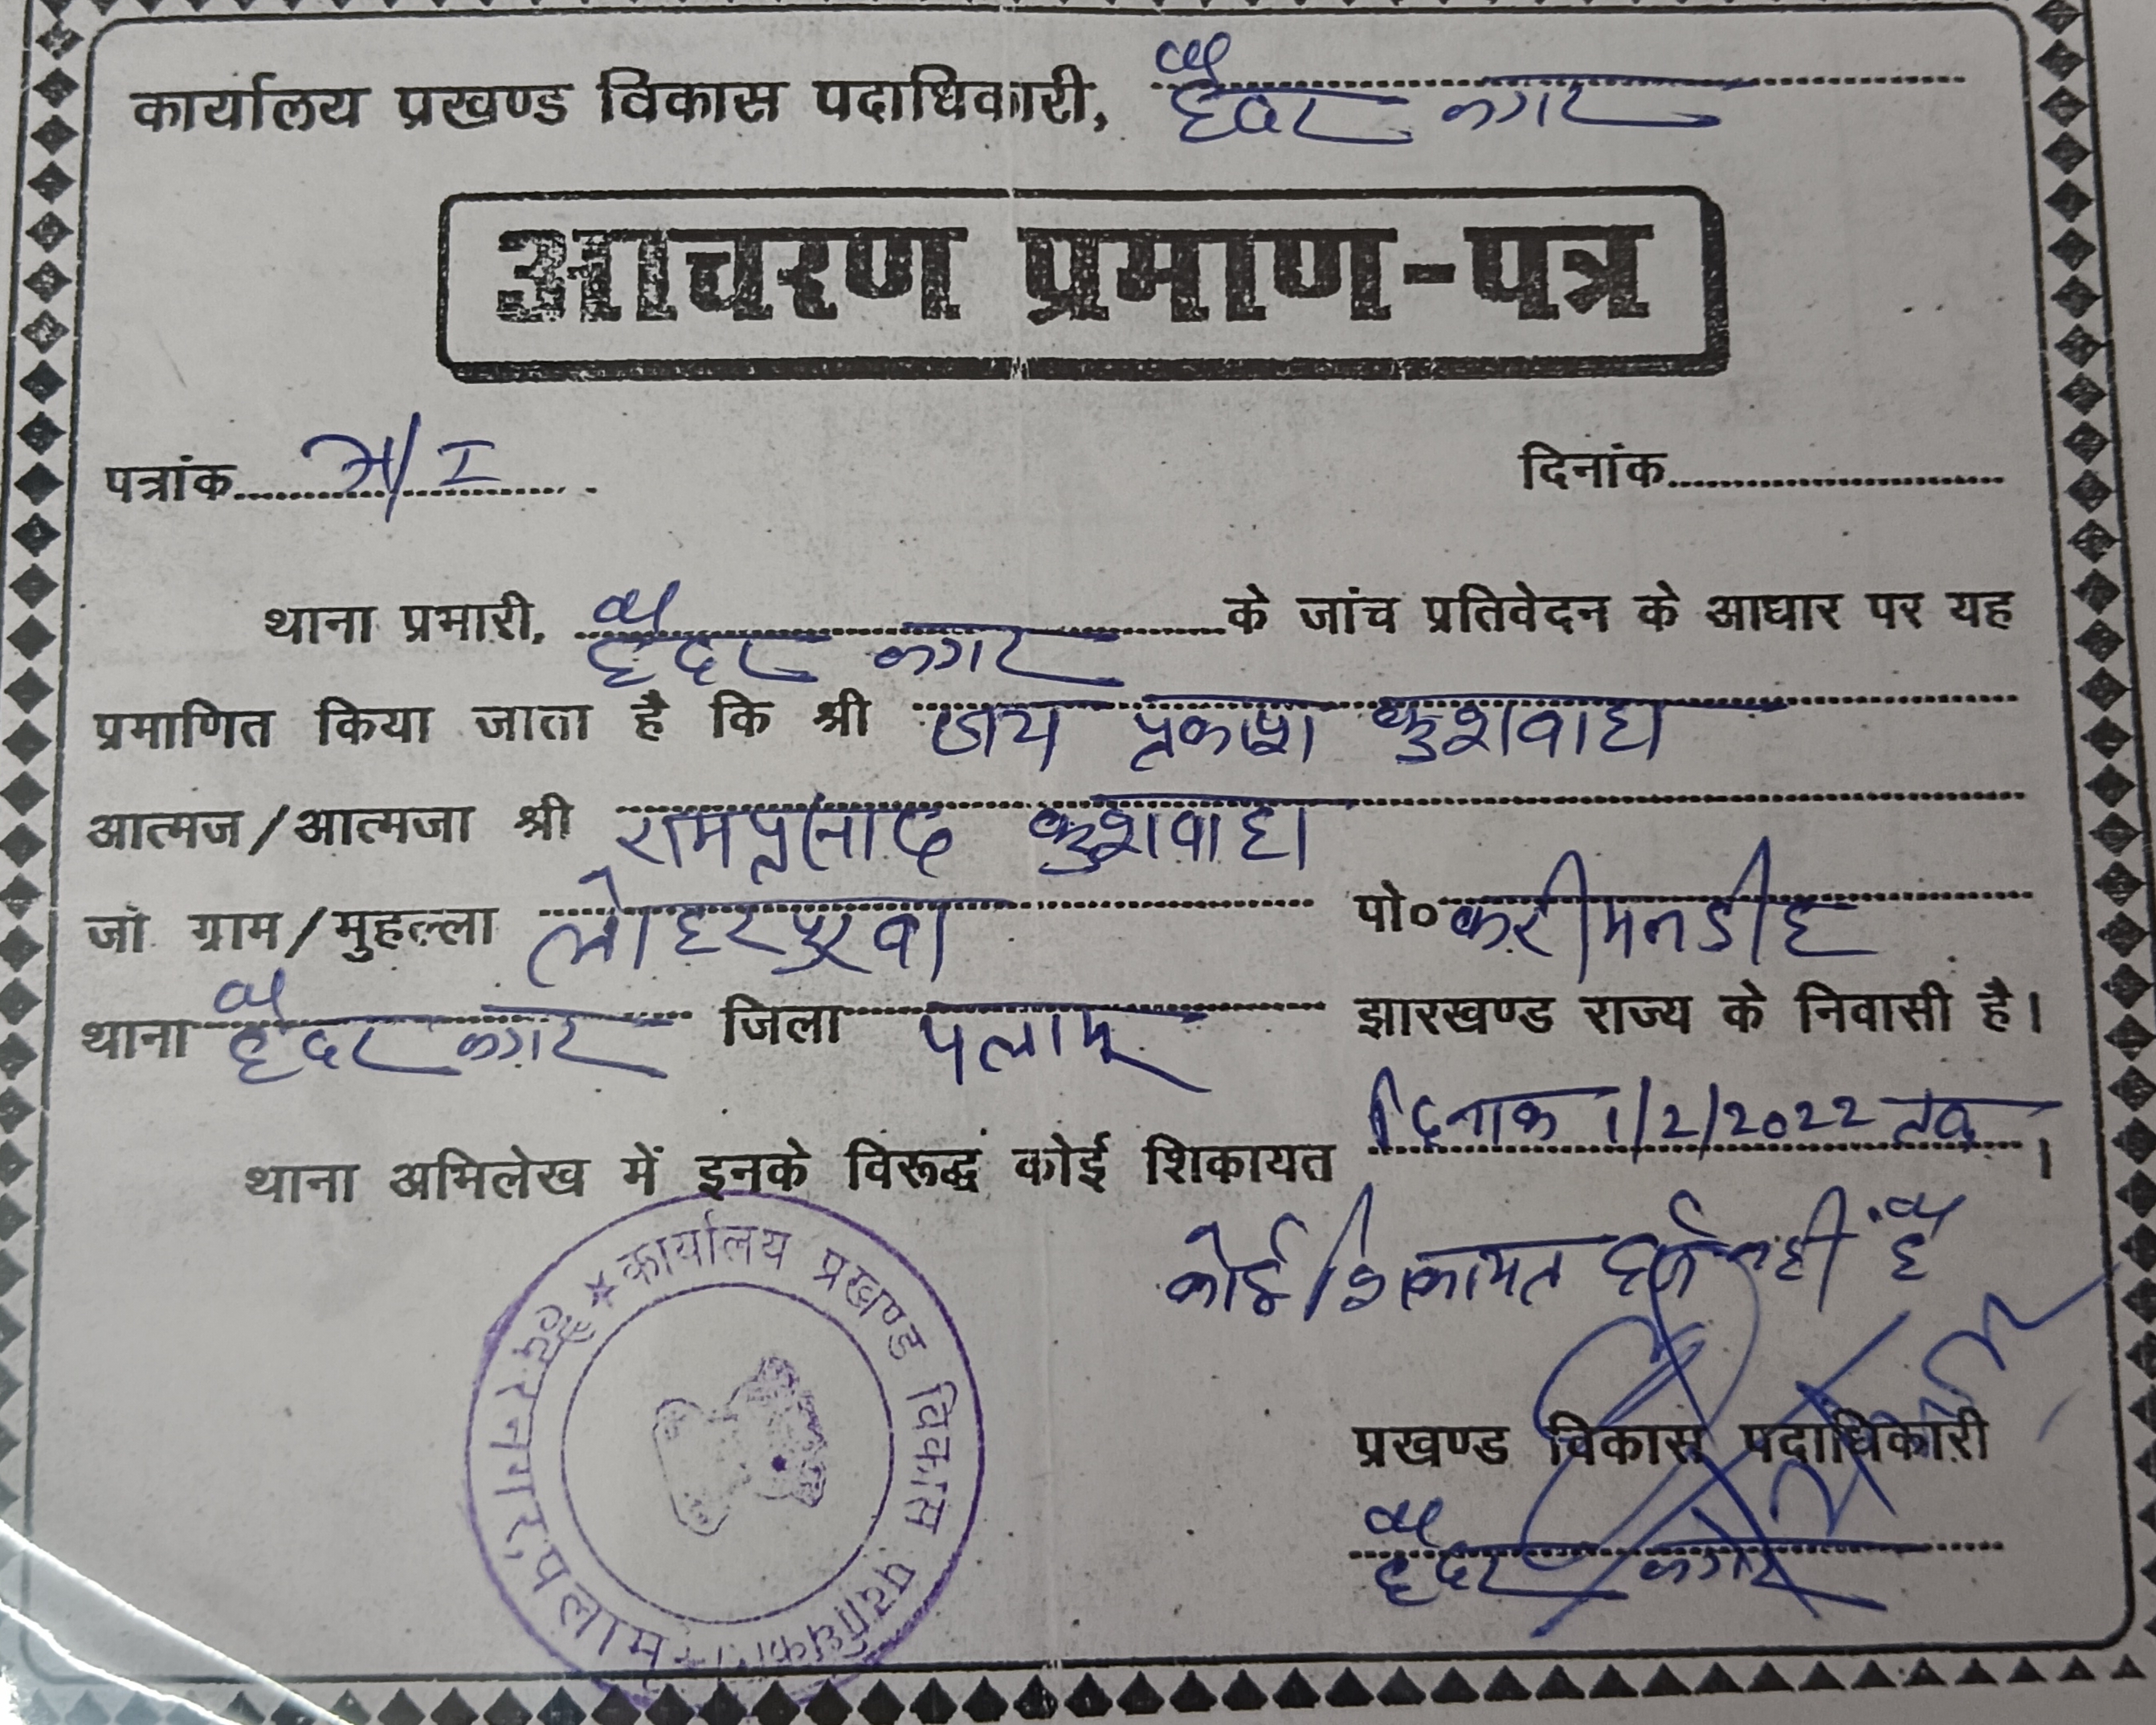 कार्यालय प्रखण्ड विकास पदाधिकारी, हैदर नगर
आचरण प्रमाण-पत्र
पत्रांक दिनांक
थाना प्रभारी, हैदर नगर के जांच प्रतिवेदन के आधार पर यह
प्रमाणित किया जाता है कि श्री जय प्रकाश कुशवाहा
आत्मज/आत्मजा श्री रामप्रसाद कुशवाहा
जो ग्राम/मुहल्ला लोहरपुरवा पो० करीमनडीह
थाना हैदर नगर जिला पलामू झारखण्ड राज्य के निवासी है।
थाना अभिलेख में इनके विरूद्ध कोई शिकायत दिनाक 1/2/2022 तक ।
कोई शिकायत दर्ज नही है
प्रखण्ड विकास पदाधिकारी
हैदर नगर
कार्यालय प्रखण्ड विकास पदाधिकारी
हैदरनगर, पलामू